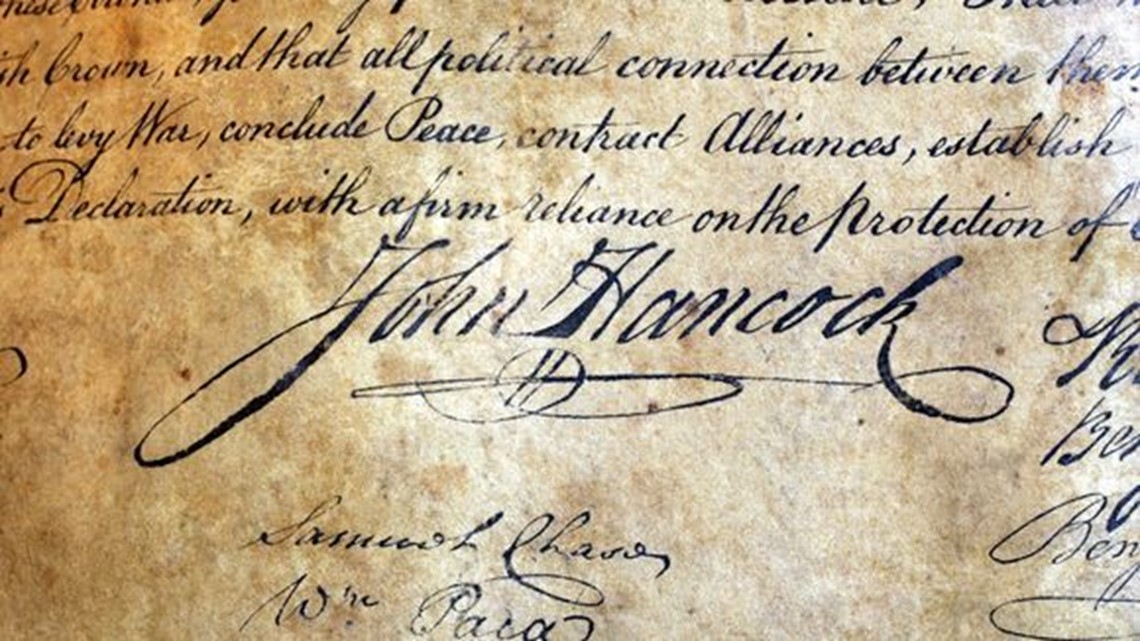 ish Crown, and that all political connection between them
to levy War, conclude Peace, contract Alliances, establish
Declaration, with a firm reliance on the protection of
John Hancock
Samuel Chase
Wm Paca